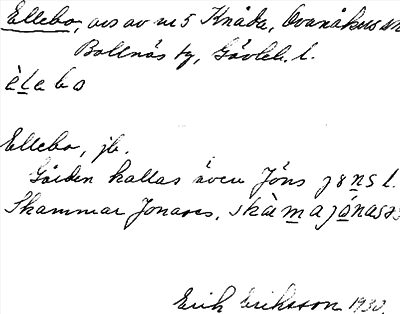 Ellebo, avs av nr 5 Knåda, Ovanåkers sn
Bollnäs tg, Gävleb. l.
èlebo
Ellebo, jb.
Gården kallas även Jöns jöns l.
Skammar Jonases, skàmajónasəs
Erik Eriksson 1932.